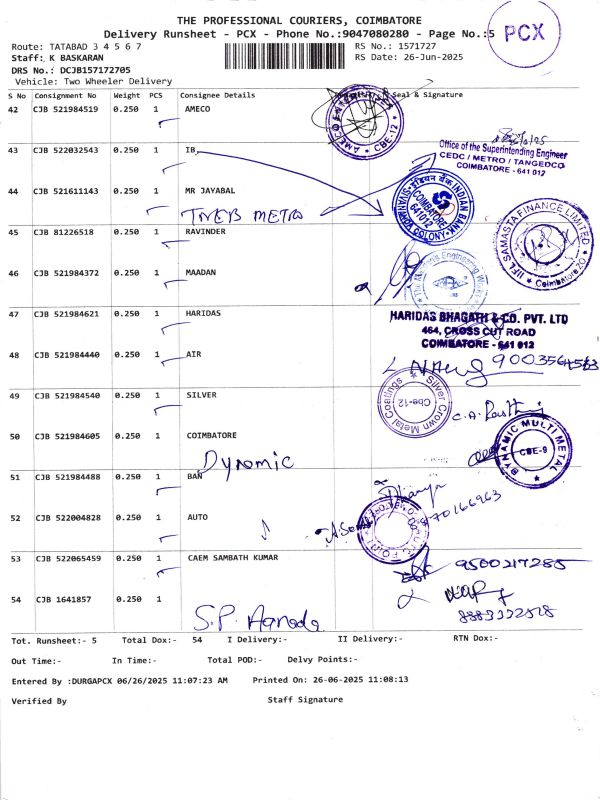 THE PROFESSIONAL COURIERS, COIMBATORE
Delivery Runsheet - PCX - Phone No.:9047080280 - Page No.:5
PCX
Route: TATABAD 3 4 5 6 7
RS No.: 1571727
Staff: K BASKARAN
RS Date: 26-Jun-2025
DRS No.: DCJB157172705
Vehicle: Two Wheeler Delivery
S No Consignment No Weight PCS Consignee Details Seal & Signature
42 CJB 521984519 0.250 1 AMECO
CBE-12
43 CJB 522032543 0.250 1 IB
Office of the Superintending Engineer
CEDC / METRO / TANGEDCO
COIMBATORE - 641 012
44 CJB 521611143 0.250 1 MR JAYABAL
TNEB METRO
INDIAN BANK
COIMBATORE
641012
COLONY
45 CJB 81226518 0.250 1 RAVINDER
IIFL SAMASTA FINANCE LIMITED
46 CJB 521984372 0.250 1 MAADAN
47 CJB 521984621 0.250 1 HARIDAS
HARIDAS BHAGATH & CO. PVT. LTD
464, CROSS CUT ROAD
COIMBATORE - 641 012
48 CJB 521984440 0.250 1 AIR
49 CJB 521984540 0.250 1 SILVER
Silver Crown Metal Coatings
Cbe-12
50 CJB 521984605 0.250 1 COIMBATORE
Dynamic
DYNAMIC MULTI METAL
CBE-9
51 CJB 521984488 0.250 1 BAN
52 CJB 522004828 0.250 1 AUTO
53 CJB 522065459 0.250 1 CAEM SAMBATH KUMAR
9500217285
54 CJB 1641857 0.250 1
S.P.
Tot. Runsheet:- 5 Total Dox:- 54 I Delivery:- II Delivery:- RTN Dox:-
Out Time:- In Time:- Total POD:- Delvy Points:-
Entered By :DURGAPCX 06/26/2025 11:07:23 AM Printed On: 26-06-2025 11:08:13
Verified By Staff Signature